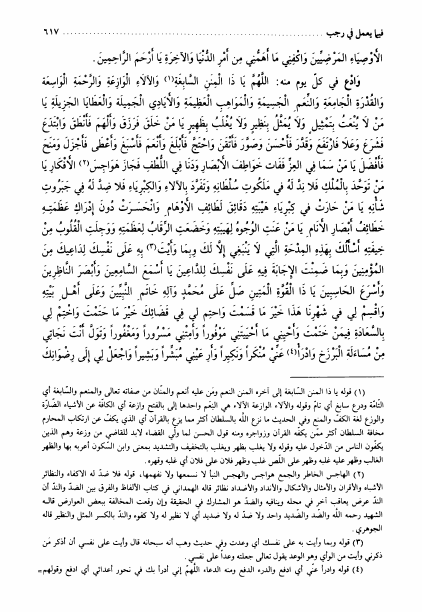 فيما يعمل في رجب ٦١٧
الْأَوْصِيَاءِ الْمَرْضِيِّينَ وَاكْفِنِي مَا أَهَمَّنِي مِنْ أَمْرِ الدُّنْيَا وَالْآخِرَةِ يَا أَرْحَمَ الرَّاحِمِينَ.
وَادْعُ في كلّ يوم منه: اللَّهُمَّ يَا ذَا الْمِنَنِ السَّابِغَةِ(١) وَالْآلَاءِ الْوَازِعَةِ وَالرَّحْمَةِ الْوَاسِعَةِ
وَالْقُدْرَةِ الْجَامِعَةِ وَالنِّعَمِ الْجَسِيمَةِ وَالْمَوَاهِبِ الْعَظِيمَةِ وَالْأَيَادِي الْجَمِيلَةِ وَالْعَطَايَا الْجَزِيلَةِ يَا
مَنْ لَا يُنْعَتُ بِتَمْثِيلٍ وَلَا يُمَثَّلُ بِنَظِيرٍ وَلَا يُغْلَبُ بِظَهِيرٍ يَا مَنْ خَلَقَ فَرَزَقَ وَأَلْهَمَ فَأَنْطَقَ وَابْتَدَعَ
فَشَرَعَ وَعَلَا فَارْتَفَعَ وَقَدَّرَ فَأَحْسَنَ وَصَوَّرَ فَأَتْقَنَ وَاحْتَجَّ فَأَبْلَغَ وَأَنْعَمَ فَأَسْبَغَ وَأَعْطَى فَأَجْزَلَ وَمَنَحَ
فَأَفْضَلَ يَا مَنْ سَمَا فِي الْعِزِّ فَفَاتَ خَوَاطِفَ الْأَبْصَارِ وَدَنَا فِي اللُّطْفِ فَجَازَ هَوَاجِسَ(٢) الْأَفْكَارِ يَا
مَنْ تَوَحَّدَ بِالْمُلْكِ فَلَا نِدَّ لَهُ فِي مَلَكُوتِ سُلْطَانِهِ وَتَفَرَّدَ بِالْآلَاءِ وَالْكِبْرِيَاءِ فَلَا ضِدَّ لَهُ فِي جَبَرُوتِ
شَأْنِهِ يَا مَنْ حَارَتْ فِي كِبْرِيَاءِ هَيْبَتِهِ دَقَائِقُ لَطَائِفِ الْأَوْهَامِ وَانْحَسَرَتْ دُونَ إِدْرَاكِ عَظَمَتِهِ
خَطَائِفُ أَبْصَارِ الْأَنَامِ يَا مَنْ عَنَتِ الْوُجُوهُ لِهَيْبَتِهِ وَخَضَعَتِ الرِّقَابُ لِعَظَمَتِهِ وَوَجِلَتِ الْقُلُوبُ مِنْ
خِيفَتِهِ أَسْأَلُكَ بِهَذِهِ الْمِدْحَةِ الَّتِي لَا يَنْبَغِي إِلَّا لَكَ وَبِمَا وَأَيْتَ(٣) بِهِ عَلَى نَفْسِكَ لِدَاعِيكَ مِنَ
الْمُؤْمِنِينَ وَبِمَا ضَمِنْتَ الْإِجَابَةَ فِيهِ عَلَى نَفْسِكَ لِلدَّاعِينَ يَا أَسْمَعَ السَّامِعِينَ وَأَبْصَرَ النَّاظِرِينَ
وَأَسْرَعَ الْحَاسِبِينَ يَا ذَا الْقُوَّةِ الْمَتِينَ صَلِّ عَلَى مُحَمَّدٍ وَآلِهِ خَاتَمِ النَّبِيِّينَ وَعَلَى أَهْلِ بَيْتِهِ
وَاقْسِمْ لِي فِي شَهْرِنَا هَذَا خَيْرَ مَا قَسَمْتَ وَاحْتِمْ لِي فِي قَضَائِكَ خَيْرَ مَا حَتَمْتَ وَاخْتِمْ لِي
بِالسَّعَادَةِ فِيمَنْ خَتَمْتَ وَأَحْيِنِي مَا أَحْيَيْتَنِي مَوْفُوراً وَأَمِتْنِي مَسْرُوراً وَمَغْفُوراً وَتَوَلَّ أَنْتَ نَجَاتِي
مِنْ مُسَاءَلَةِ الْبَرْزَخِ وَادْرَأْ(٤) عَنِّي مُنْكَراً وَنَكِيراً وَأَرِ عَيْنِي مُبَشِّراً وَبَشِيراً وَاجْعَلْ لِي إِلَى رِضْوَانِكَ
(١) قوله يا ذا المنن السابغة إلى آخره المنن النعم ومَن عليه أنعم والمنّان من صفاته تعالى والمنعم والسابغة أي
التامّة ودرع سابغ أي تامّ وقوله والآلاء الوازعة الآلاء هي النِعَم واحدها إلى بالفتح وازعة أي الكافّة عن الأشياء الضارّة
والوزع لغة الكفّ والمنع وفي الحديث ما نزع الله بالسلطان أكثر مما يزع بالقرآن أي الذي يكفّ عن ارتكاب المحارم
مخافة السلطان أكثر ممّن يكفّه القرآن وزواجره ومنه قول الحسن لما ولّي القضاء لابد للقاضي من وزعة وهم الذين
يكفّون الناس من الدخول عليه وقوله ولا يغلب بظهير ويغلب بالتخفيف والتشديد بمعنى وابن السكون أعربه بها والظهر
الغالب وظهر عليه غلبه وظهر على اللصّ غلب وظهر فلان على فلان أي غلبه وقهره.
(٢) الهاجس الخاطر والجمع هواجس والهجس النبأ لا تسمعها ولا تفهمها، قوله فلا ضدّ له الاكفاء والنظائر
الأشباه والأقران والأمثال والأشكال والأنداد والأضداد نظائر قاله الهمداني في كتاب الألفاظ والفرق بين الضدّ والندّ أن
الندّ عرض يعاقب آخر في محله وينافيه والضدّ هو المشارك في الحقيقة وإن وقعت المخالفة ببعض العوارض قاله
الشهيد رحمه الله والضد والضديد واحد ولا ضدّ له ولا ضديد أي لا نظير له ولا كفوه والندّ بالكسر المثل والنظير قاله
الجوهري.
(٣) قوله وبما وأيت به على نفسك أي وعدت وفي حديث وهب أنه سبحانه قال وأيت على نفسي أن أذكر مَن
ذكرني وأيت من الوأي وهو الوعد يقول تعالى جعلته وعداً على نفسي.
(٤) قوله وادرأ عنّي أي ادفع والدرء الدفع ومنه الدعاء اللّهمّ إني أدرأ بك في نحور أعدائي أي ادفع وقولهم=